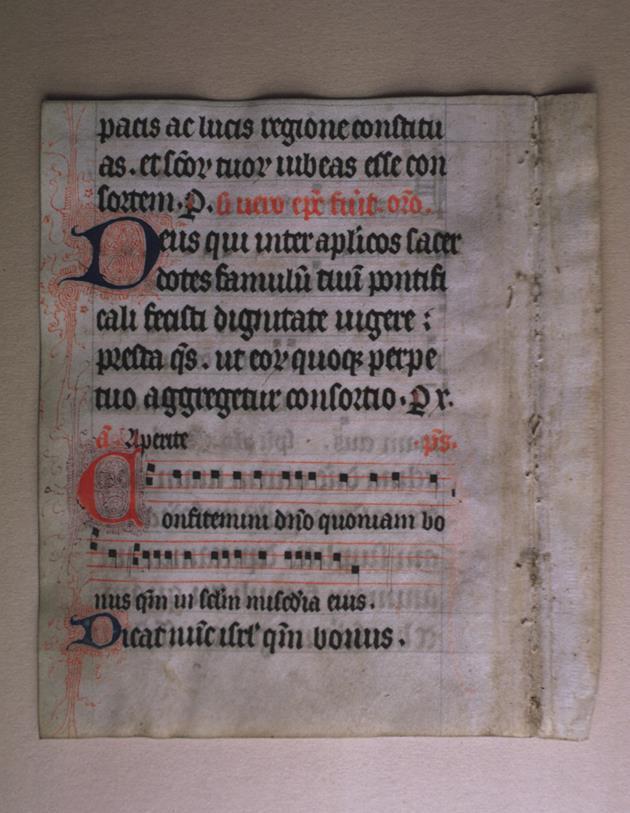 pacis ac lucis regione constitu
as. et scoꝝ tuoꝝ iubeas esse con
sortem. P. si uero epc fuit. oro.
Deus qui inter aplicos sacer
dotes famulū tuū pontifi
cali fecisti dignitate uigere :
presta qs. ut eoꝝ quoqꝫ perpe
tuo aggregetur consortio. P x.
a Aperite ps.
Confitemini dno quoniam bo
nus qm in sclm misedia eius.
Dicat nūc isrl qm bonus.